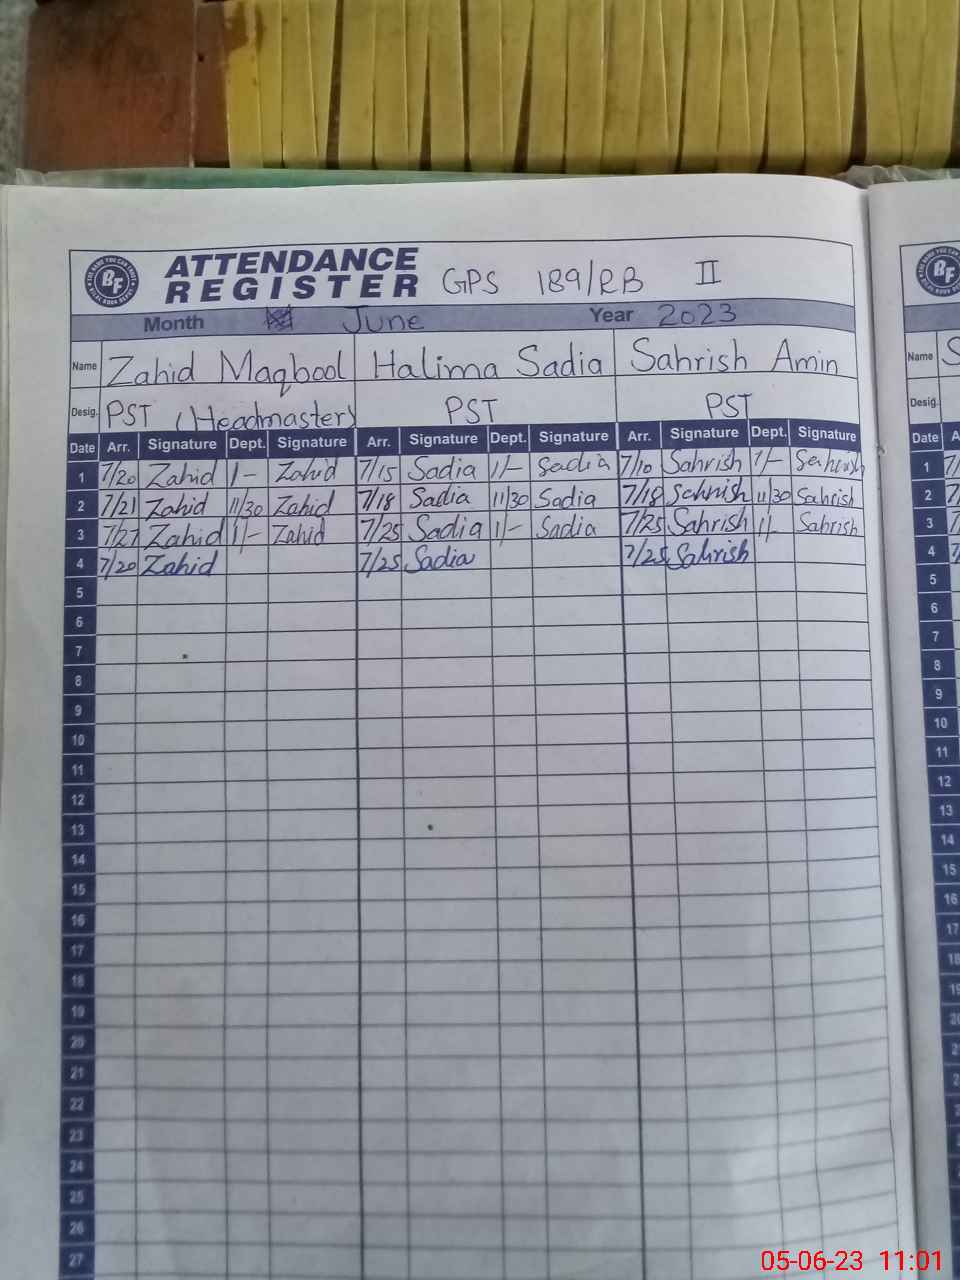 ATTENDANCE
REGISTER GPS 189/RB II
Month June Year 2023
Name Zahid Maqbool Halima Sadia Sahrish Amin
Desig. PST (Headmaster) PST PST
Date Arr. Signature Dept. Signature Arr. Signature Dept. Signature Arr. Signature Dept. Signature
1 7/20 Zahid 1/- Zahid 7/15 Sadia 1/- Sadia 7/10 Sahrish 1/- Sahrish
2 7/21 Zahid 11/30 Zahid 7/18 Sadia 11/30 Sadia 7/18 Sahrish 11/30 Sahrish
3 7/27 Zahid 1/- Zahid 7/25 Sadia 1/- Sadia 7/25 Sahrish 1/- Sahrish
4 7/20 Zahid 7/25 Sadia 7/25 Sahrish
5
6
7
8
9
10
11
12
13
14
15
16
17
18
19
20
21
22
23
24
25
26
27
BF
Name
Desig.
Date
1
2
3
4
5
6
7
8
9
10
11
12
13
14
15
16
17
18
05-06-23 11:01